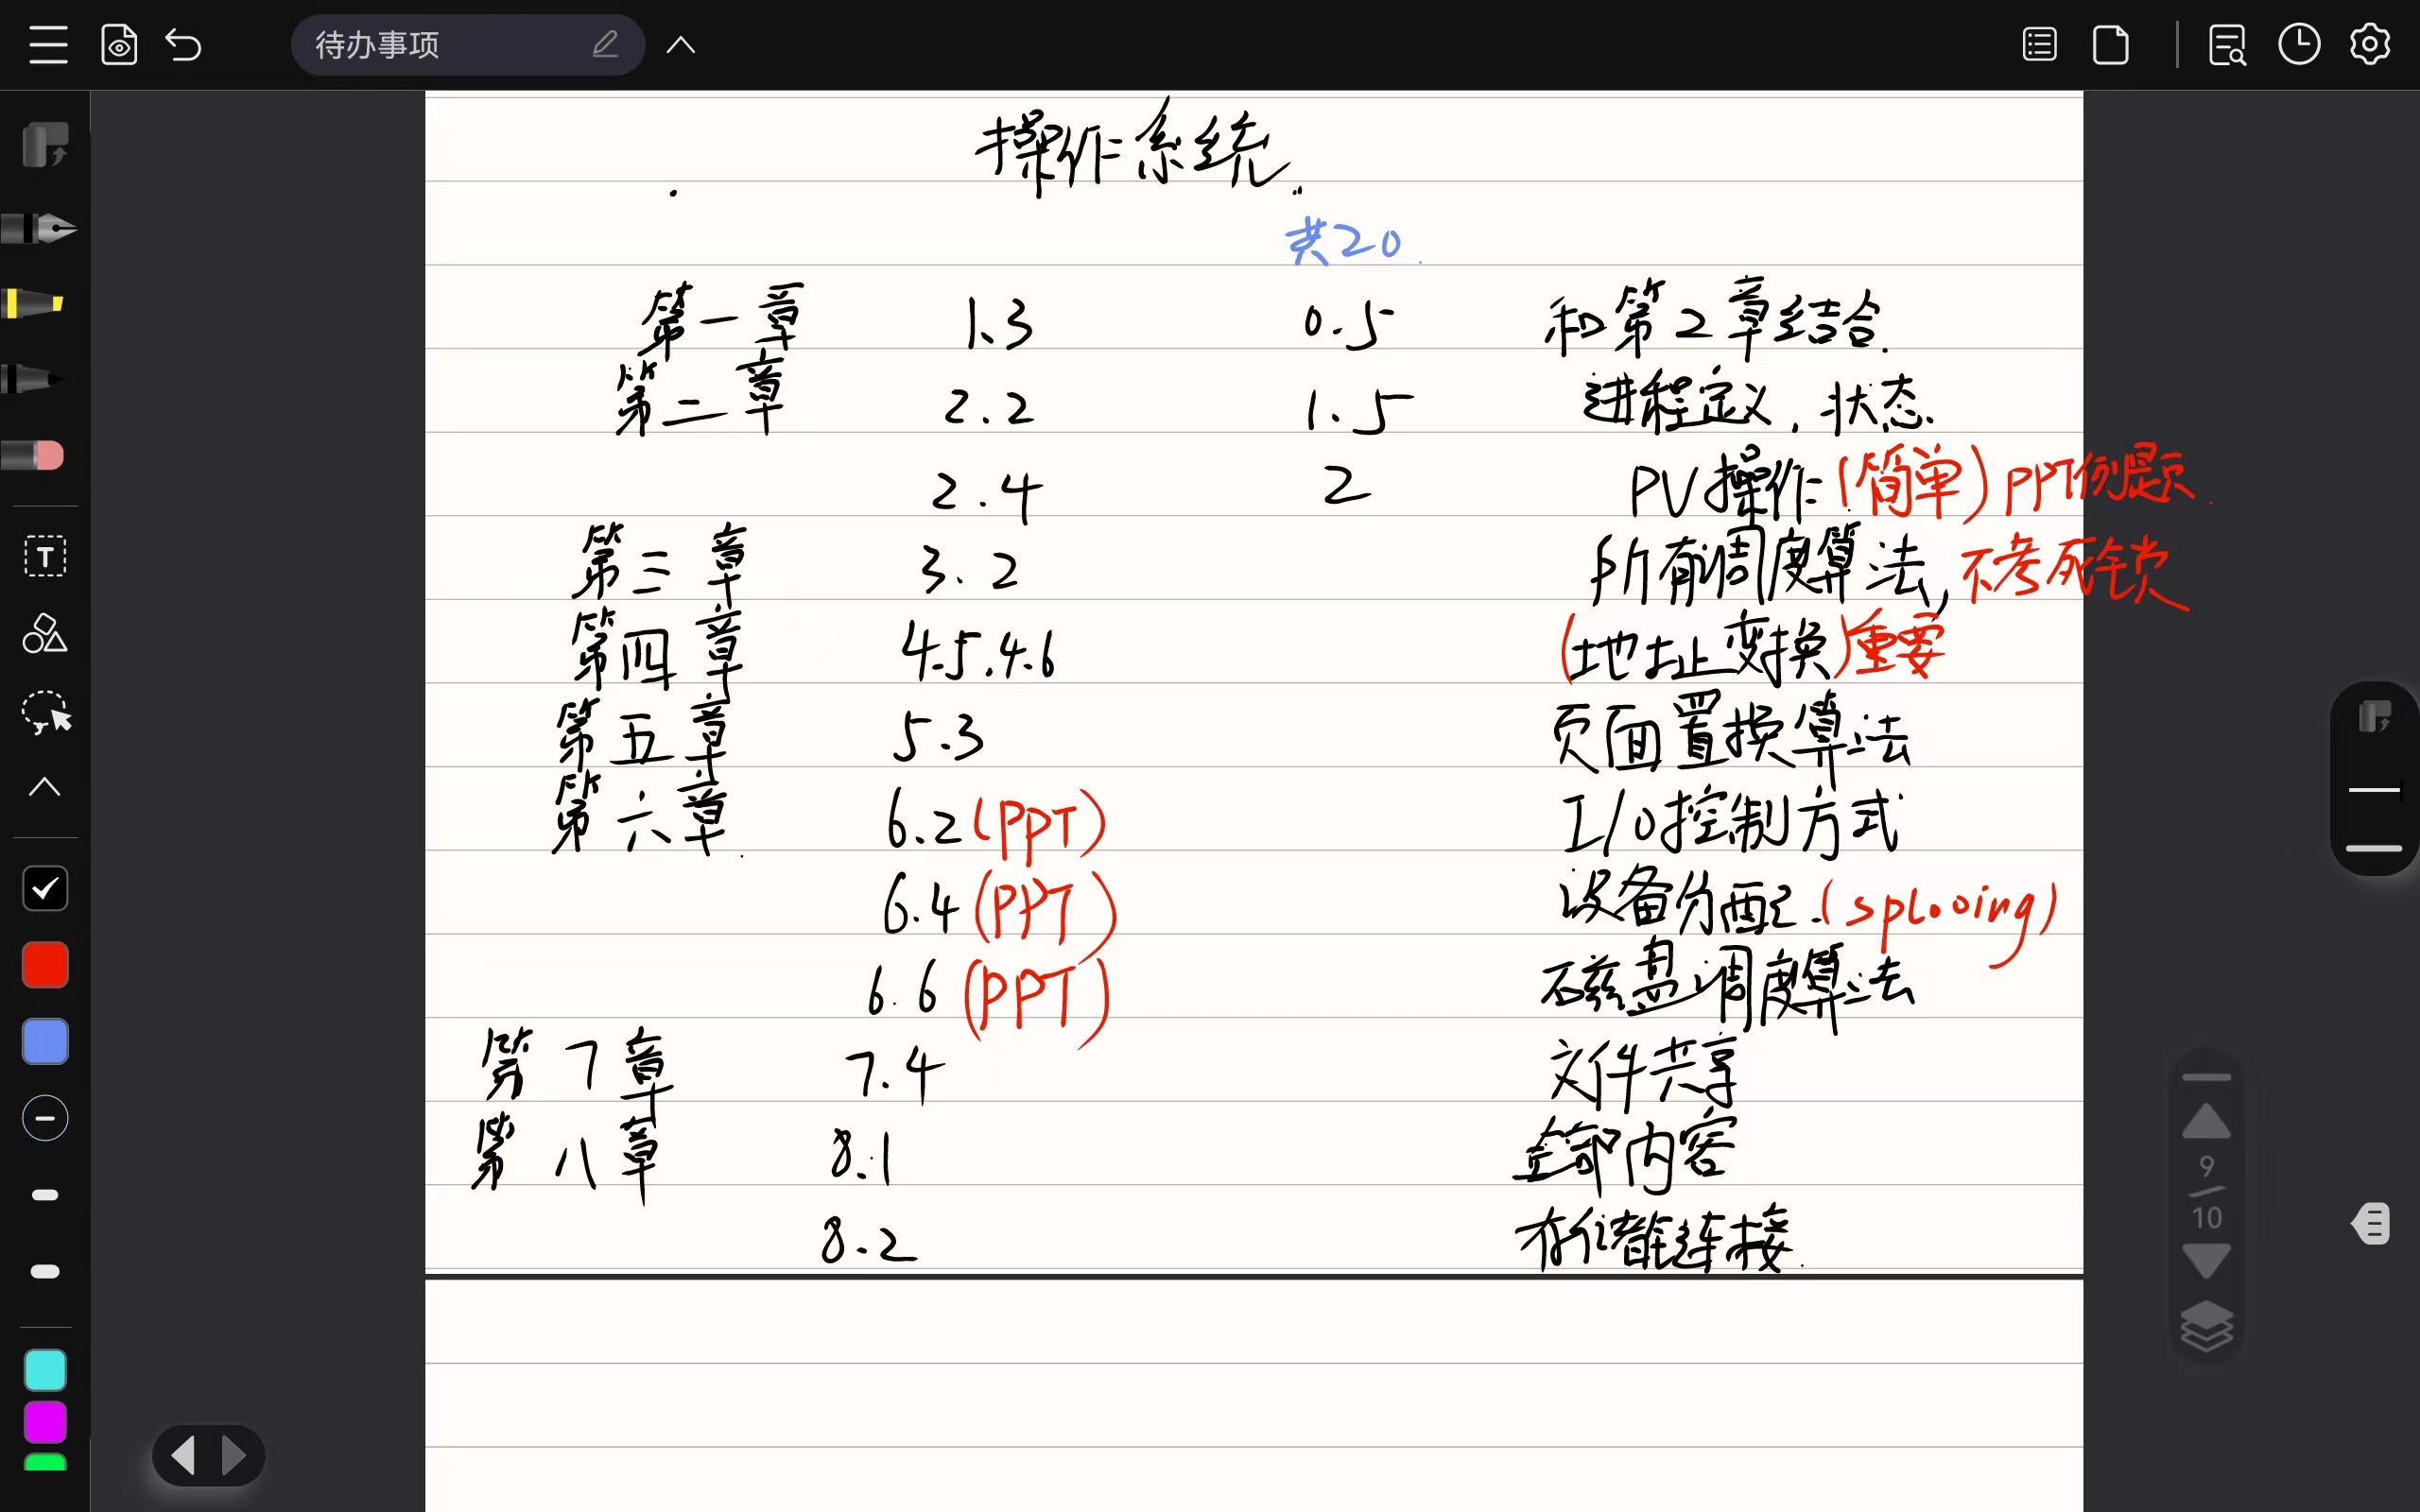 待办事项
操作系统.
共20
第一章 1.3 0.5 和第2章结合.
第二章 2.2 1.5 进程定义,状态.
2.4 2 PV操作(简单)PPT例题
第三章 3.2 所有调度算法,不考死锁
第四章 4.5.4.6 (地址变换)重要
第五章 5.3 页面置换算法
第六章 6.2(PPT) I/O控制方式
6.4(PPT) 设备分配.(splooing)
6.6(PPT) 磁盘调度算法
第7章 7.4 文件共享
第八章 8.1 全部内容
8.2 存储连接.
T
9
10